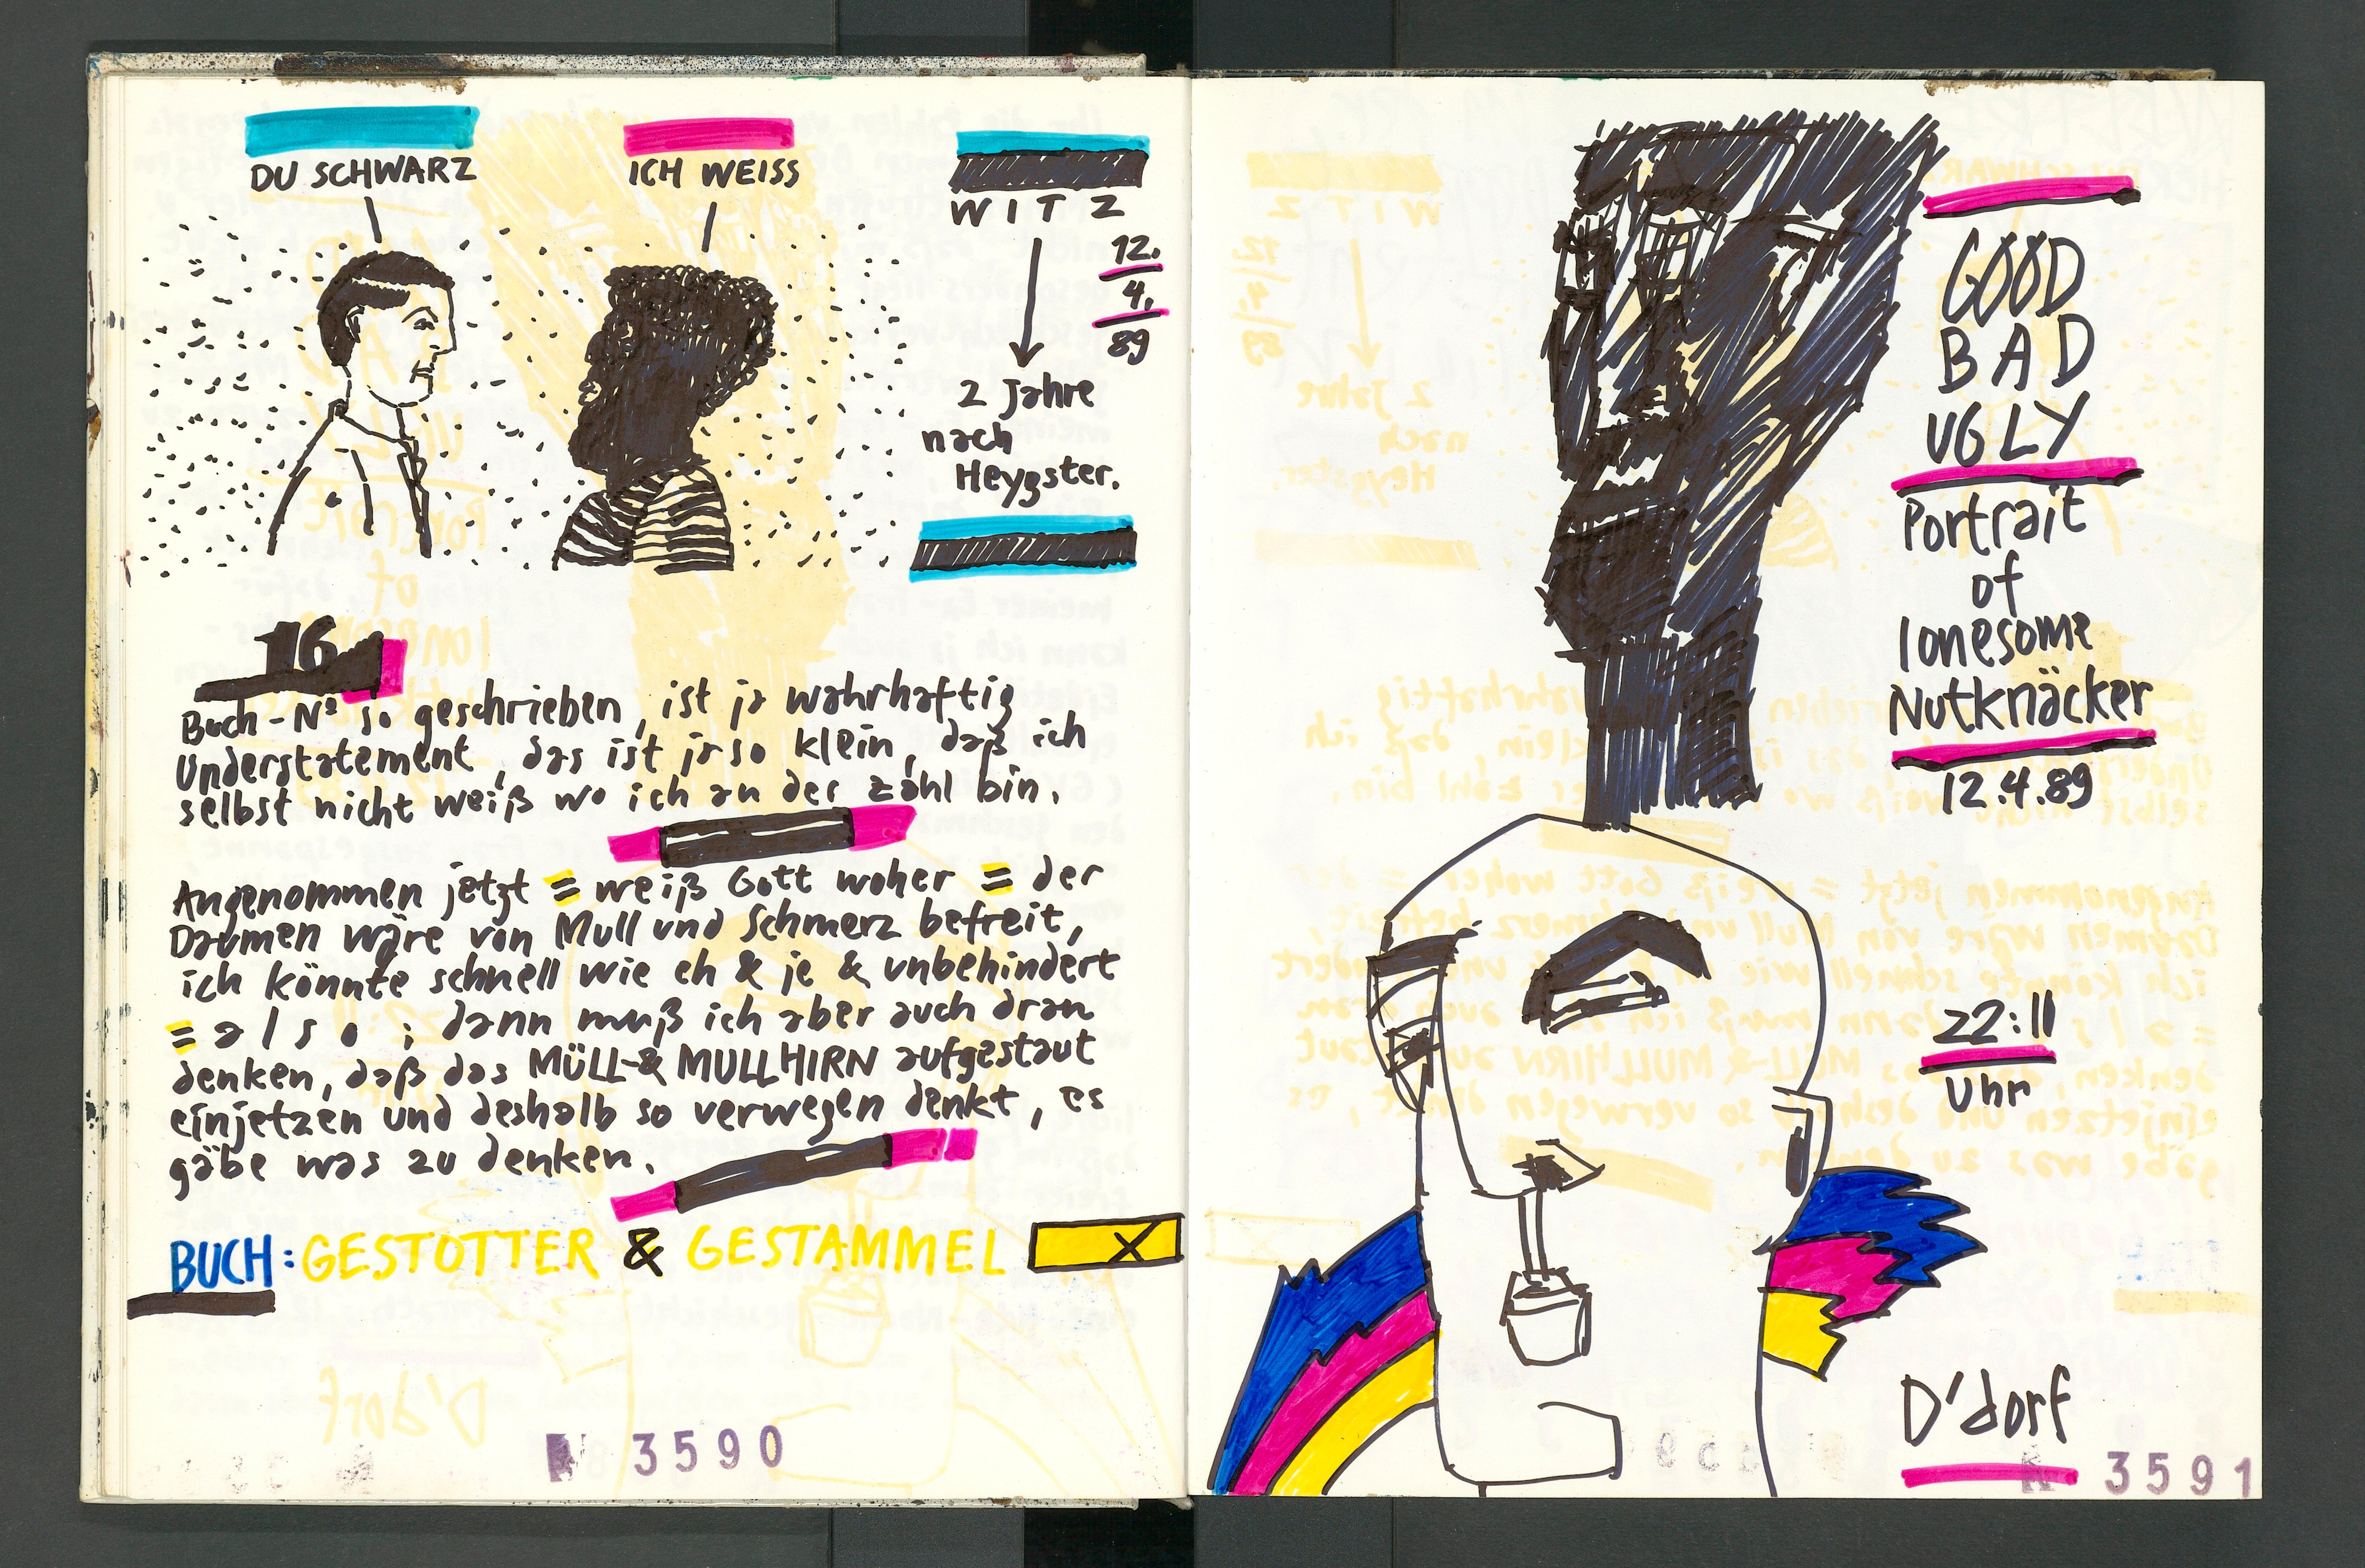 DU SCHWARZ
ICH WEISS
WITZ
12.
4.
89
2 Jahre
nach
Heygster.
16
Buch-Nº so geschrieben, ist ja wahrhaftig
Understatement, das ist ja so klein, daß ich
selbst nicht weiß wo ich an der Zahl bin.
Angenommen jetzt = weiß Gott woher = der
Daumen wäre von Mull und Schmerz befreit,
ich könnte schnell wie eh & je & unbehindert
= also ; dann muß ich aber auch dran
denken, daß das MÜLL-& MULLHIRN aufgestaut
einjetzen und deshalb so verwegen denkt, es
gäbe was zu denken.
BUCH: GESTOTTER & GESTAMMEL X
N 3590
GOOD
BAD
UGLY
Portrait
of
lonesome
Nutknäcker
12.4.89
22:11
Uhr
D'dorf
N 3591